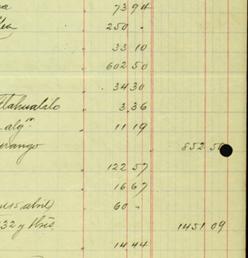 73 94
250 -
33 10
602 50
34 30
Tlahualilo 3.36
alg.ⁿ 11 19
urango 852 50
122 57
16 67
60 -
32 y Hnos. 1451 09
14 44